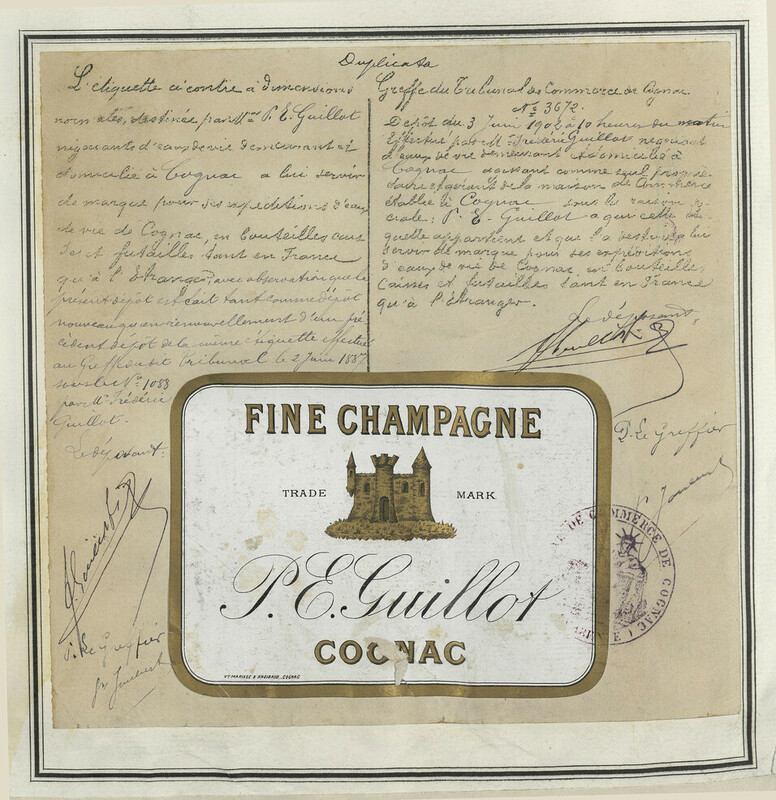 Duplicata
L'étiquette ci contre à dimensions
destinée par M. P. E. Guillot
négociants d'eaux de vie demeurant et
domiciliée à Cognac a lui servir
de marque pour ses expéditions d'eaux
de vie de Cognac, en bouteilles cais
ses et futailles tant en France
qu'à l'Etranger, avec observation que le
présent dépôt est fait tant comme dépôt
nouveau qu'en renouvellement d'un pré
cédent dépôt de la même étiquette effectué
au Greffe du dit Tribunal le 2 juin 1887
sous le No 1033
par Mr Frédéric
Guillot.
Le déposant.
P. Le Greffier
Greffe du Tribunal de Commerce de Cognac
No 3672.
Dépôt du 3 Juin 1902 à 10 heures du matin
Effectué par M. Frédéric Guillot négociant
d'eaux de vie demeurant et domicilié à
Cognac agissant comme seul proprié
taire et gérant de la maison de Commerce
établie à Cognac sous la raison so
ciale: P. E. Guillot à qui cette éti
quette appartient et qui l'a destinée à lui
servir de marque pour ses expéditions
d'eaux de vie de Cognac, en bouteilles
caisses et futailles tant en France
qu'à l'Etranger.
Le déposant
P. Le Greffier
FINE CHAMPAGNE
TRADE MARK
P. E. Guillot
COGNAC
COMMERCE DE COGNAC